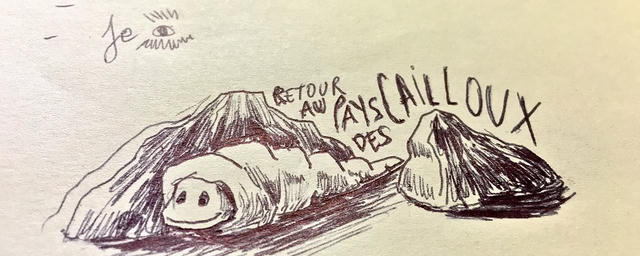 Je
RETOUR
AU PAYS
DES
CAILLOUX